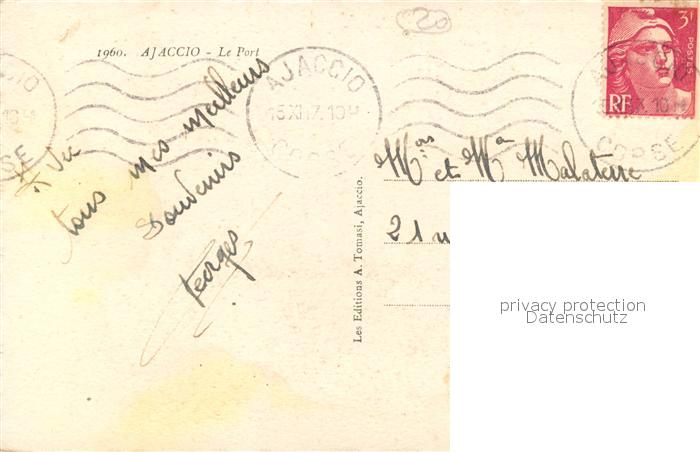 1960. AJACCIO - Le Port
AJACCIO
CORSE
AJACCIO
10H
CORSE
3F
POSTES
RF
10H
CORSE
tous mes meilleurs
Souvenirs
Georges
Les Editions A. Tomasi, Ajaccio.
et Malaterre
21
privacy protection
Datenschutz